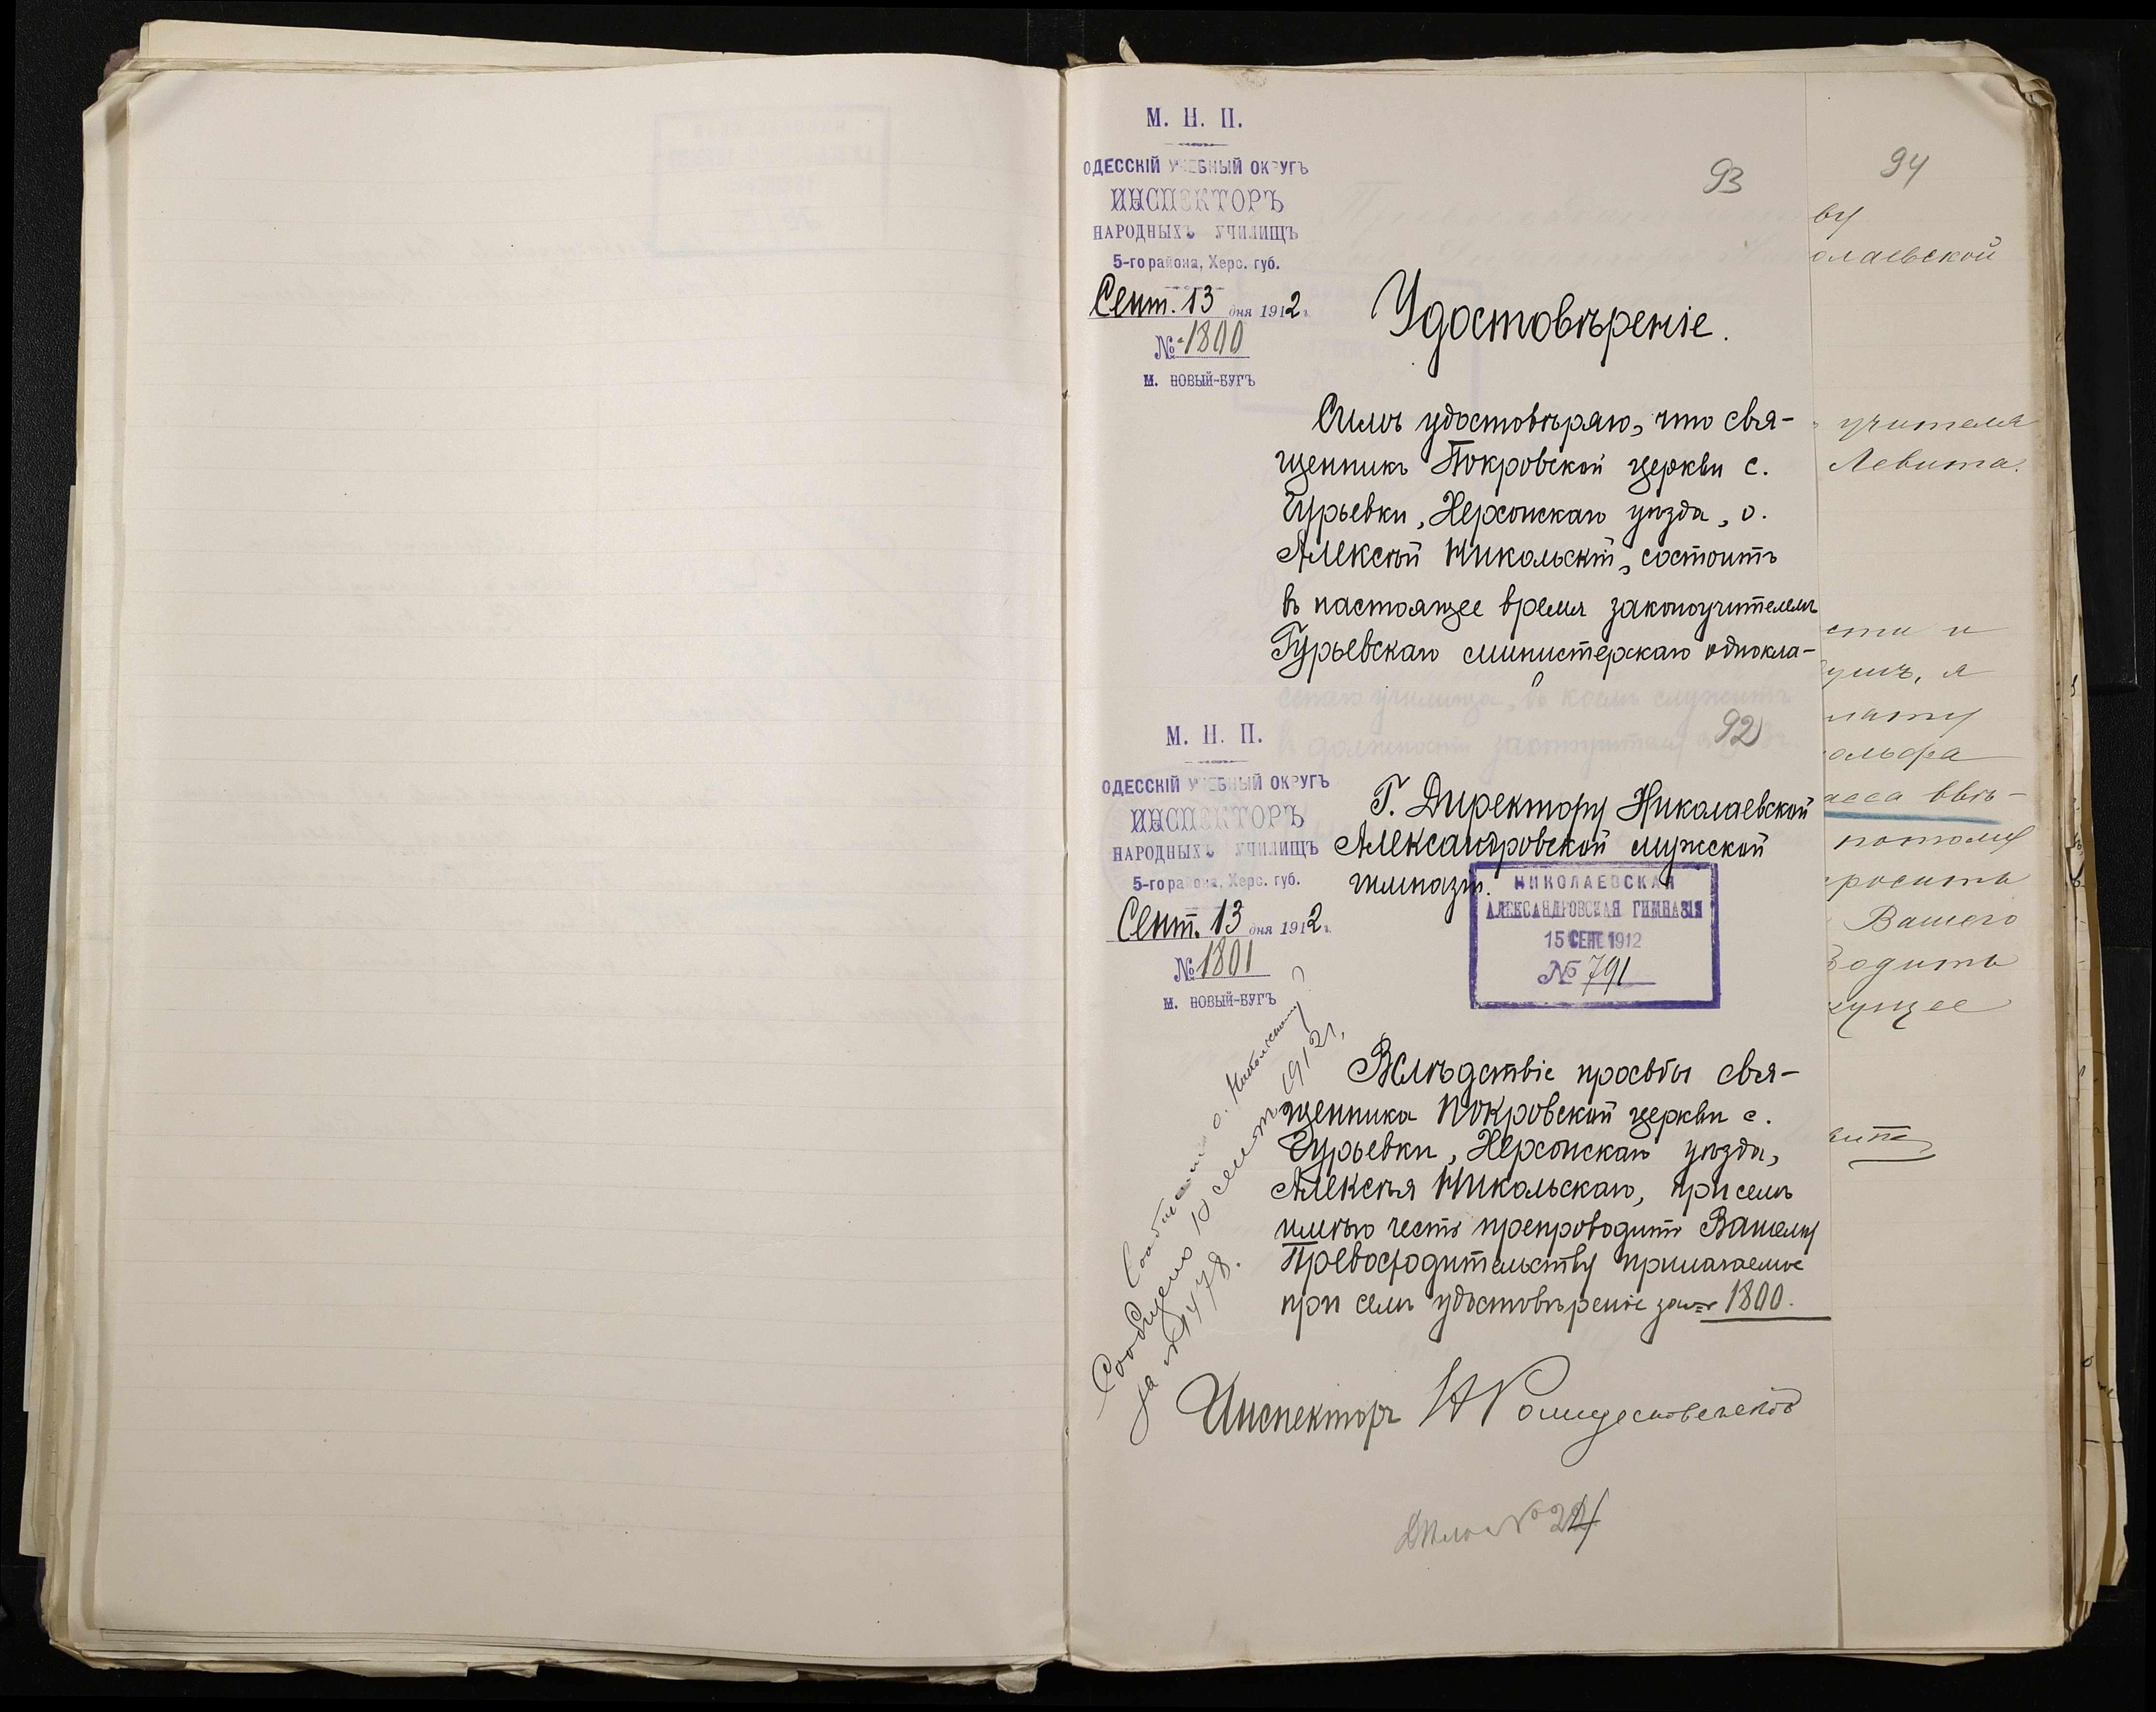 М. Н. П.
ОДЕССКІЙ УЧЕБНЫЙ ОКРУГЪ
ИНСПЕКТОРЪ
НАРОДНЫХЪ УЧИЛИЩЪ
5-го района, Херс. губ.
Сент. 13 дня 1912 г.
№ 1800
м. НОВЫЙ-БУГЪ
93
Удостовѣреніе.
Симъ удостовѣряю, что свя-
щенникъ Покровской церкви с.
Гурьевки, Херсонскаго уѣзда, о.
Алексѣй Никольскій, состоитъ
въ настоящее время законоучителемъ
Гурьевскаго министерскаго однокла-
сснаго училища, въ коемъ служитъ
въ должности законоучителя
92
М. Н. П.
ОДЕССКІЙ УЧЕБНЫЙ ОКРУГЪ
ИНСПЕКТОРЪ
НАРОДНЫХЪ УЧИЛИЩЪ
5-го района, Херс. губ.
Сент. 13 дня 1912 г.
№ 1801
м. НОВЫЙ-БУГЪ
Г. Директору Николаевской
Александровской мужской
гимназіи.
НИКОЛАЕВСКАЯ
АЛЕКСАНДРОВСКАЯ ГИМНАЗІЯ
15 СЕНТ 1912
№ 791
Вслѣдствіе просьбы свя-
щенника Покровской церкви с.
Гурьевки, Херсонскаго уѣзда,
Алексѣя Никольскаго, при семъ
имѣю честь препроводить Вашему
Превосходительству прилагаемое
при семъ удостовѣреніе за № 1800.
Инспекторъ Н Рождественскій
о. Никольскому
Сообщено 18 сент 1912 г.
за № 1478.
Дѣло № 24
94
ву
олаевской
учителя
Левита.
сти и
умъ, я
лату
ольфа
асса ввѣ-
потому
росить
Вашего
водить
ующее